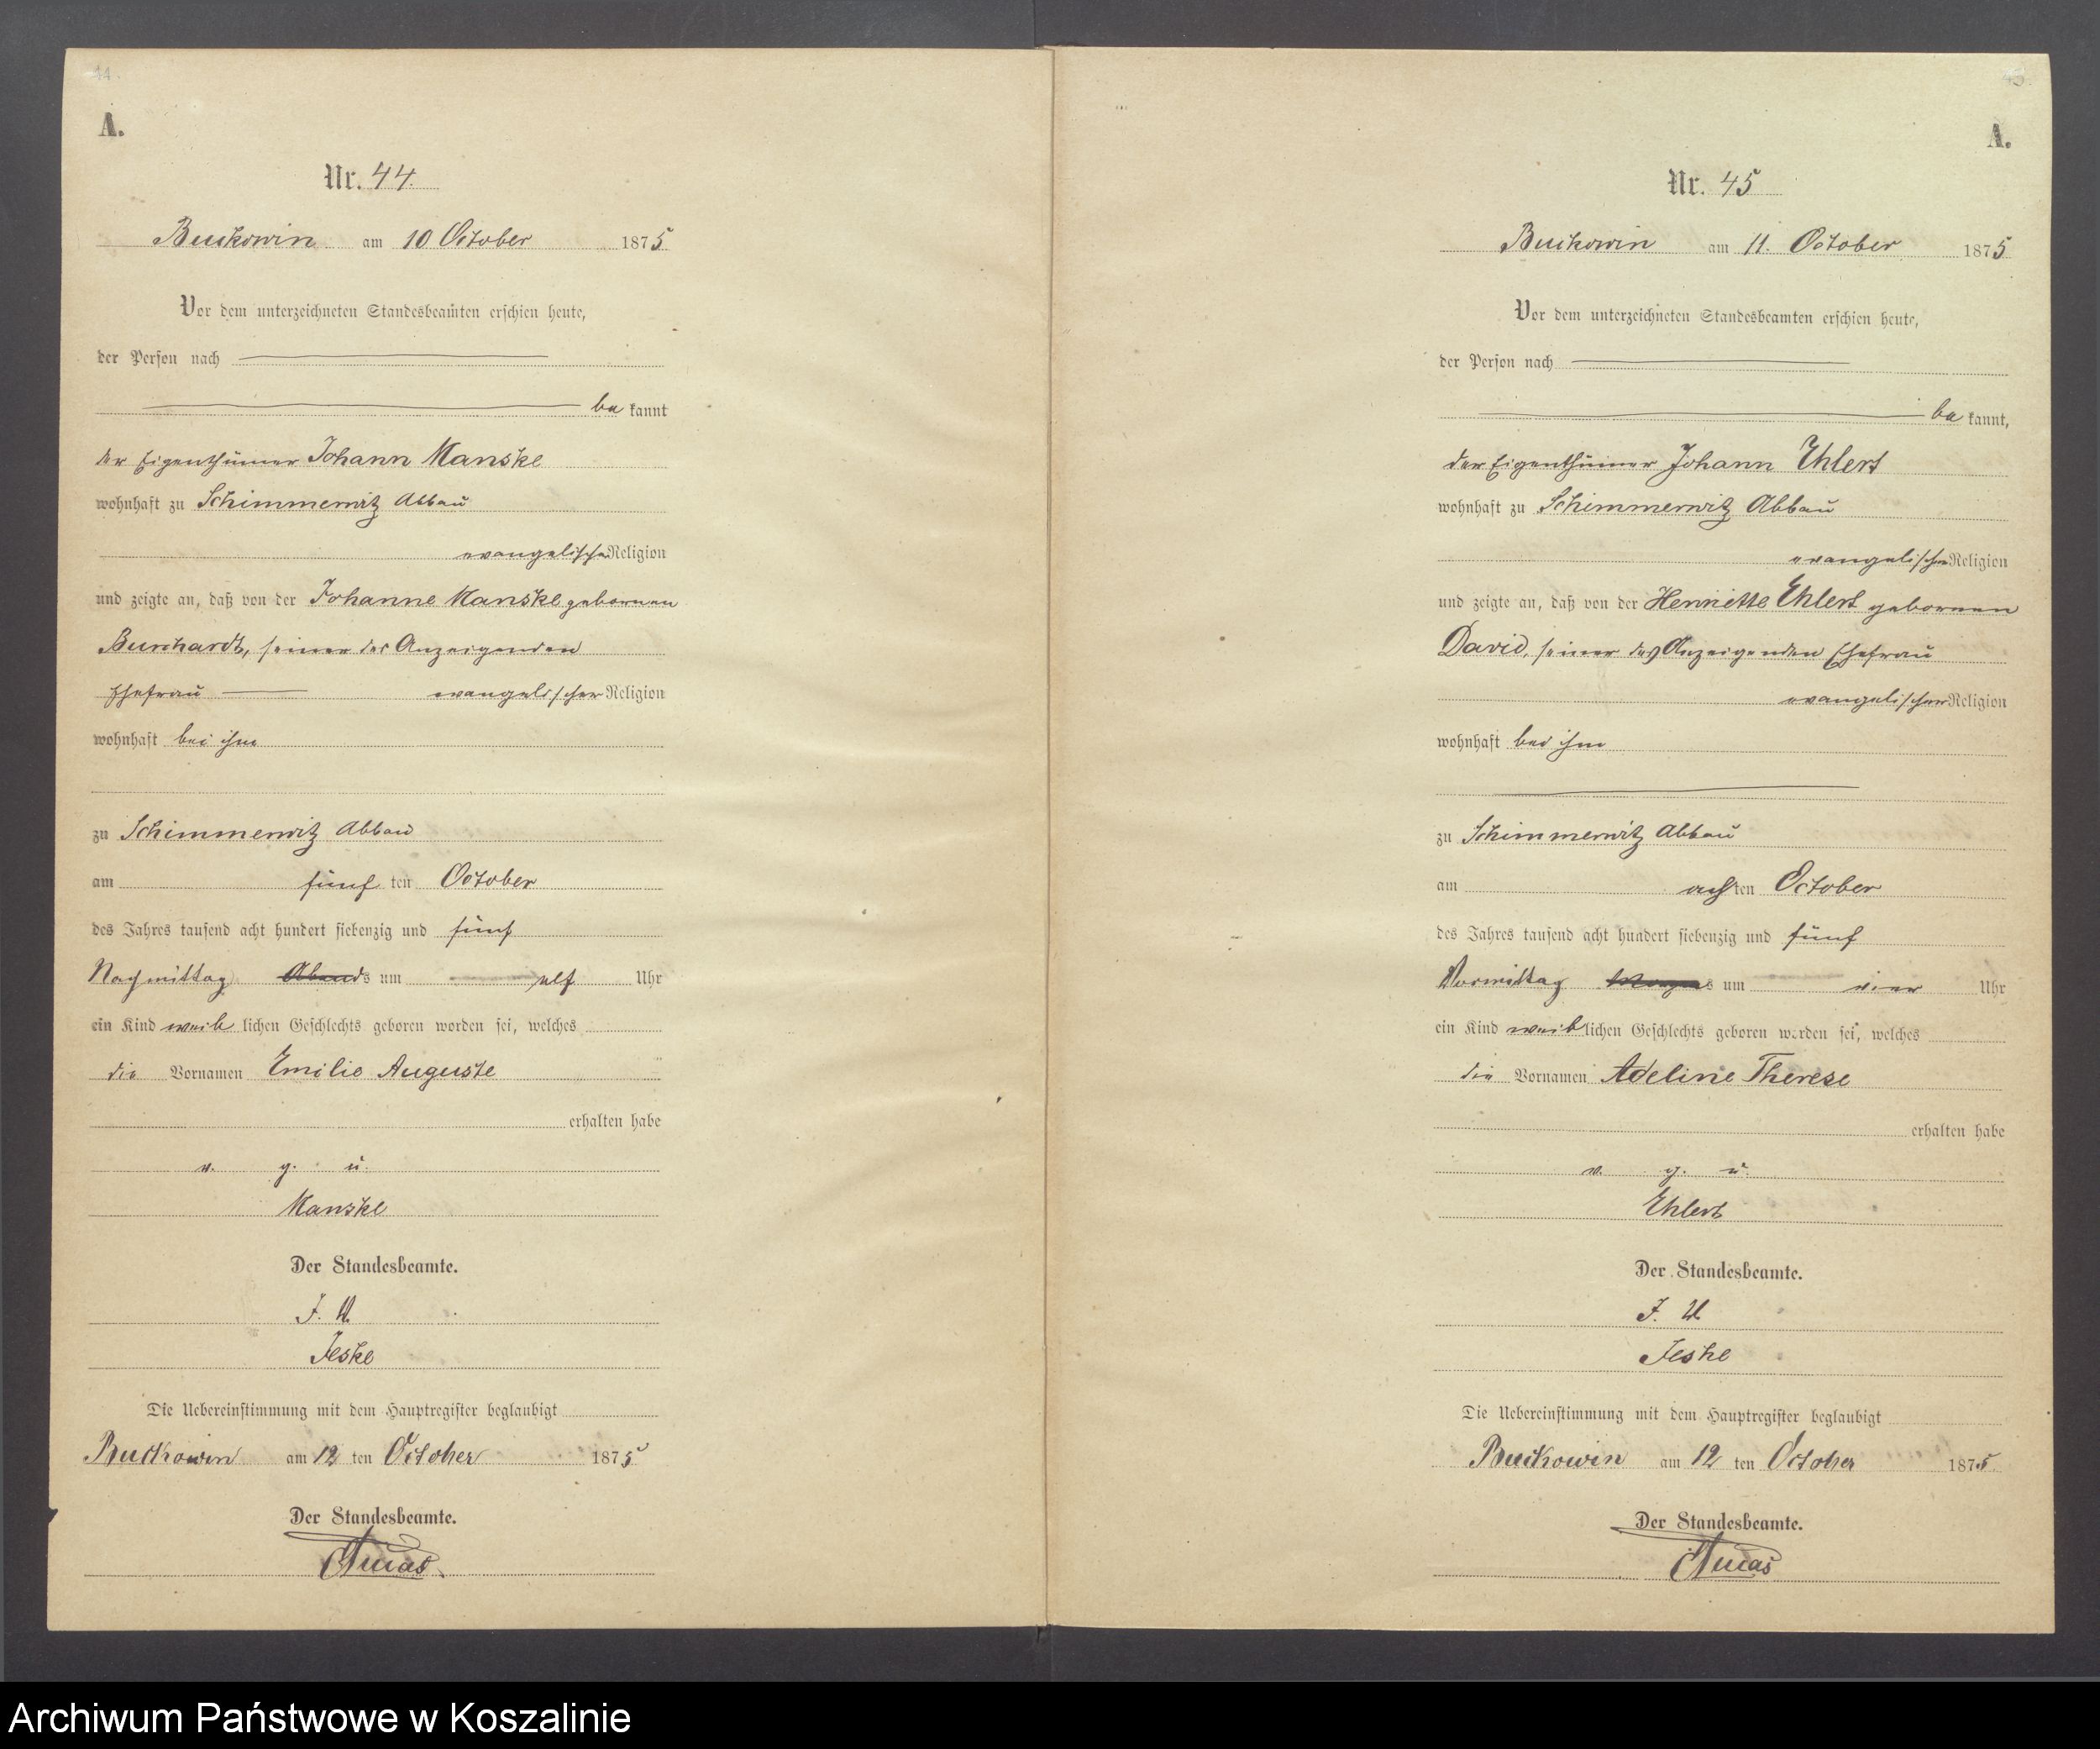 44.
A.
Nr. 44.
Buckowin am 10 October 1875
Vor dem unterzeichneten Standesbeamten erschien heute,
der Person nach
be kannt
der Eigenthümer Johann Manske
wohnhaft zu Schimmerwitz Abbau
evangelischer Religion
und zeigte an, daß von der Johanne Manske gebornen
Burchardt, seiner des Anzeigenden
Ehefrau evangelischer Religion
wohnhaft bei ihm
zu Schimmerwitz Abbau
am fünf ten October
des Jahres tausend acht hundert siebenzig und fünf
Nachmittag Abends um elf Uhr
ein Kind weib lichen Geschlechts geboren worden sei, welches
die Vornamen Emilie Auguste
erhalten habe
v. g. u.
Manske
Der Standesbeamte.
J. V.
Jeske
Die Uebereinstimmung mit dem Hauptregister beglaubigt
Buckowin am 12 ten October 1875
Der Standesbeamte.
45
A.
Nr. 45
Buckowin am 11. October 1875
Vor dem unterzeichneten Standesbeamten erschien heute,
der Person nach
be kannt,
der Eigenthümer Johann Ehlert
wohnhaft zu Schimmerwitz Abbau
evangelischer Religion
und zeigte an, daß von der Henriette Ehlert gebornen
David, seiner des Anzeigenden Ehefrau
evangelischer Religion
wohnhaft bei ihm
zu Schimmerwitz Abbau
am achten October
des Jahres tausend acht hundert siebenzig und fünf
Vormittag Morgens um vier Uhr
ein Kind weiblichen Geschlechts geboren worden sei, welches
die Vornamen Adeline Therese
erhalten habe
v. g. u.
Ehlert
Der Standesbeamte.
J. V.
Jeske
Die Uebereinstimmung mit dem Hauptregister beglaubigt
Buckowin am 12 ten October 1875
Der Standesbeamte.
Archiwum Państwowe w Koszalinie